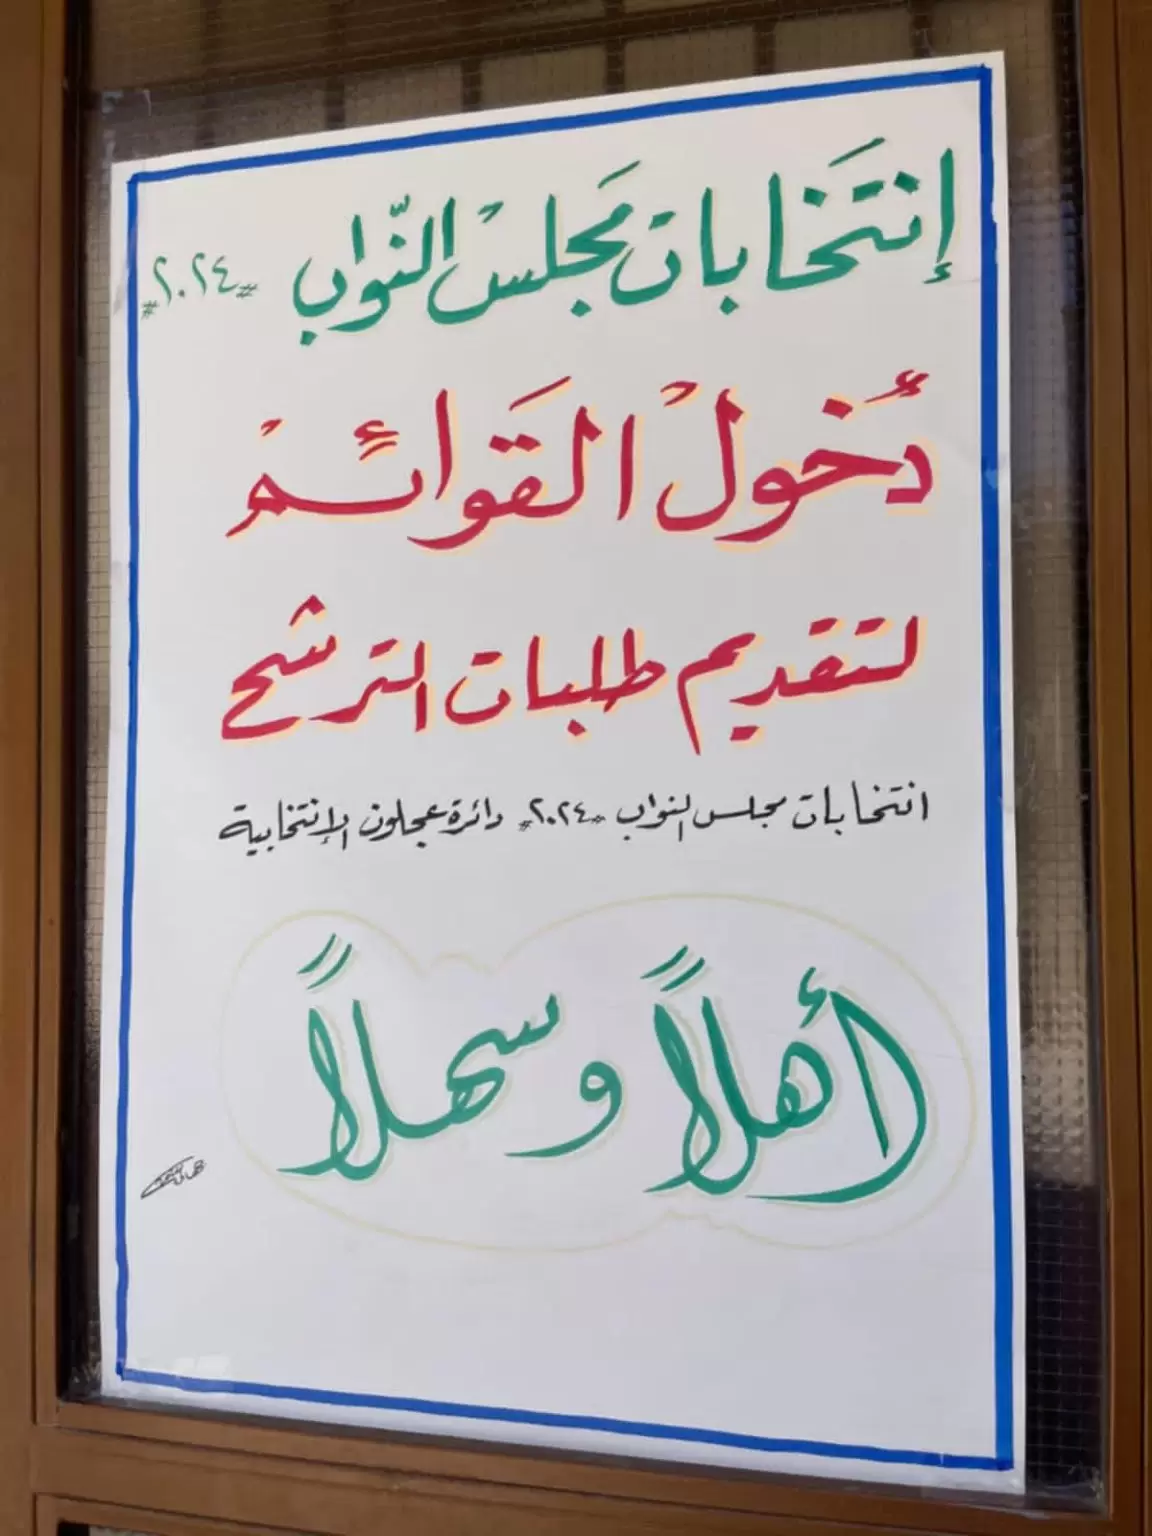 إنتَخابات مَجلسْ النّواب "٢٠٢٤"
دُخولْ القَوائِمْ
لتقديم طلبات الترشح
انتخابات مجلس النواب "٢٠٢٤" دائرة عجلون الإنتخابية
أهلاً وسهلاً